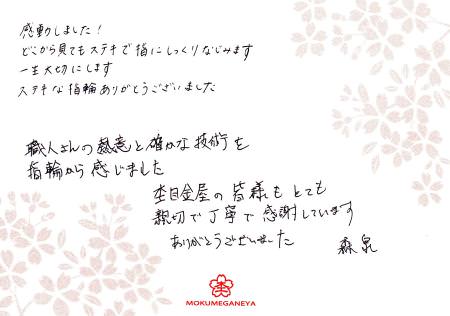 感動しました！
どこから見てもステキで指にしっくりなじみます
一生大切にします
ステキな指輪ありがとうございました
職人さんの熱意と確かな技術を
指輪から感じました
杢目金屋の皆様もとても
親切で丁寧で感謝しています
ありがとうございました
森 泉
杢
MOKUMEGANEYA